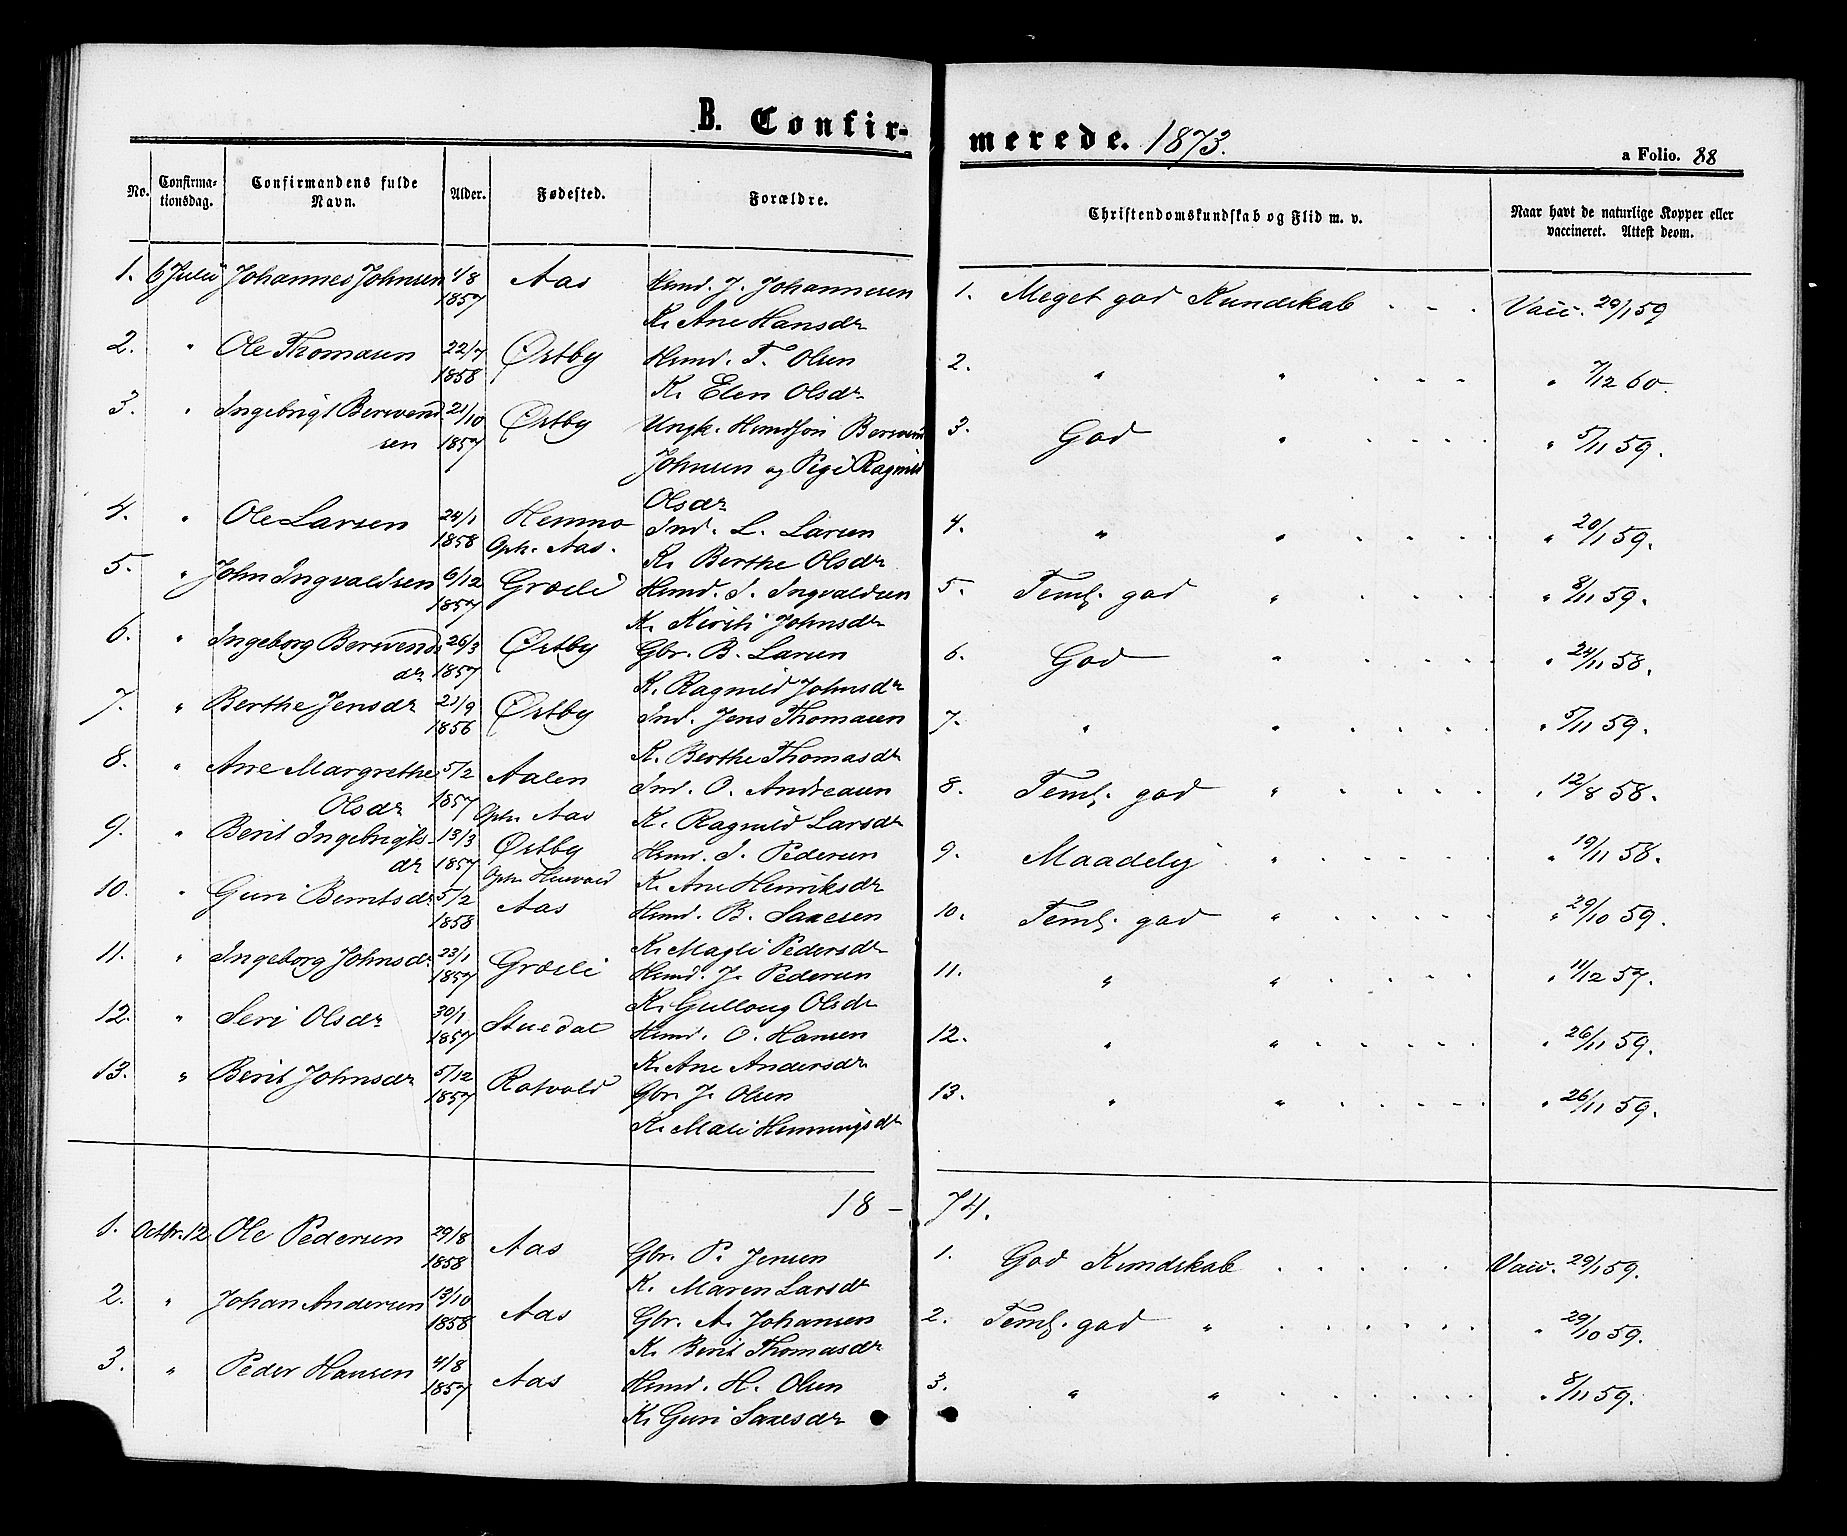 B. Confir-
merede. 1873.
a Folio. 88
No.
Confirma-
tionsdag.
Confirmandens fulde
Navn.
Alder.
Fødested.
Forældre.
Christendomskundskab og Flid m. v.
Naar havt de naturlige Kopper eller
vaccineret. Attest deom.
1. 6 Juli Johannes Johnsen 1/8 Aas Hmd. J. Johannesen 1. Meget god Kundskab Vacc. 29/1 59
1857 K. Ane Hansdr
2. " Ole Thomasen 22/7 Østby Hmd. T. Olsen 2. " " " 7/12 60.
1858 K. Elen Olsdr
3. " Ingebrigt Berwend 21/10 Østby Ungk. Hmdsøn 3. God " " 5/11 59.
sen 1857 Johnsen og Pige Ragnild
Olsdr
4. " Ole Larsen 24/1 Hemno Ind. L. Larsen 4. " " " 20/1 59.
1858 Oph. Aas. K. Berthe Olsdr
5. " John Ingvaldsen 6/12 Græsli Hmd. I. Ingvaldsen 5. Teml. god " " 8/11 59.
1857 K. Kirsti Johnsdr
6. " Ingeborg Berwends 26/3 Østby Gbr. B. Larsen 6. God " " 24/11 58.
dr 1857 K. Ragnild Johnsdr
7. " Berthe Jensdr 21/9 Østby Ind. Jens Thomasen 7. " " " 5/11 59.
1856 K. Berthe Thomasdr
8. " Ane Margrethe 5/2 Aalen Ind. O. Andreasen 8. Teml. god " " 12/8 58.
Olsdr 1857 Oph. Aas K. Ragnild Larsdr
9. " Berit Ingebrigts- 13/3 Østby Hmd. I. Pedersen 9. Maadelig " " 19/11 58.
dr 1857 Oph. K. Ane Henriksdr
10. " Guri Berntsdr 5/2 Aas Hmd. B. Saxesen 10. Teml. god " " 29/10 59.
1858 K. Magli Pedersdr
11. " Ingeborg Johnsdr 23/1 Græsli Hmd. J. Pedersen 11. " " " 11/12 57.
1857 K. Gulloug Olsdr
12. " Seri Olsdr 30/1 Stuedal Hmd. O. Hansen 12. " " " 26/11 59.
1857 K. Ane Andersdr
13. " Berit Johnsdr 5/12 Rotvold Gbr. J. Olsen 13. " " " 26/11 59.
1857 K. Mali Henningsdr
18 - 74.
1. Octbr. 12 Ole Pedersen 29/8 Aas Gbr. P. Jensen 1. God Kundskab Vacc. 29/1 59.
1858 K. Maren Larsdt
2. " Johan Andersen 13/10 Aas Gbr. A. Johansen 2. Teml. god " " 29/10 59.
1858 K. Berit Thomasdr
3. " Peder Hansen 4/8 Aas Hmd. H. Olsen 3. " " " 8/11 59.
1857 K. Guri Saxesdr